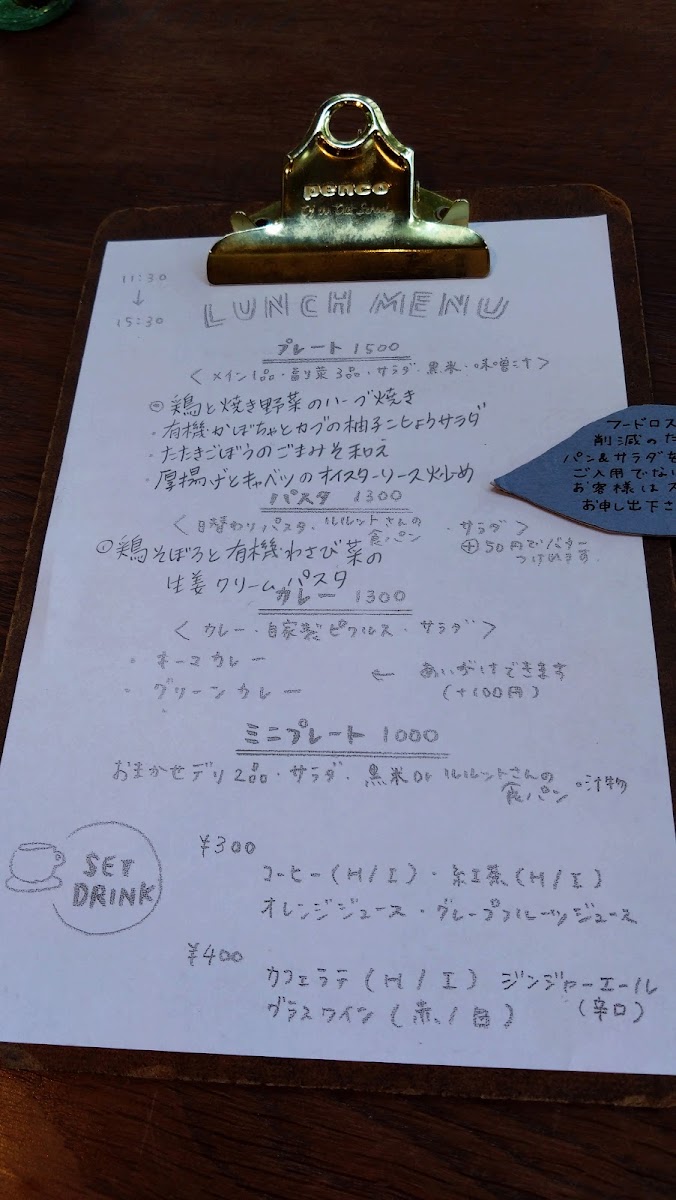 penco
11:30
↓
15:30
LUNCH MENU
プレート 1500
<メイン1品・副菜3品・サラダ・黒米・味噌汁>
鶏と焼き野菜のハーブ焼き
・有機かぼちゃとカブの柚子こしょうサラダ
・たたきごぼうのごまみそ和え
・厚揚げとキャベツのオイスターソース炒め
パスタ 1300
<日替わりパスタ・ルルットさんの食パン・サラダ>
⊕50円でバターつけれます。
鶏そぼろと有機わさび菜の
生姜クリームパスタ
カレー 1300
<カレー・自家製ピクルス・サラダ>
・キーマカレー
・グリーンカレー
← あいがけできます
(+100円)
ミニプレート 1000
おまかせデリ2品・サラダ・黒米orルルットさんの食パン・汁物
SET
DRINK
¥300
コーヒー(H/I)・紅茶(H/I)
オレンジジュース・グレープフルーツジュース
¥400
カフェラテ(H/I) ジンジャーエール
(辛口)
グラスワイン(赤/白)
フードロス
削減のた
パン&サラダを
ご入用でない
お客様はス
お申し出下さ